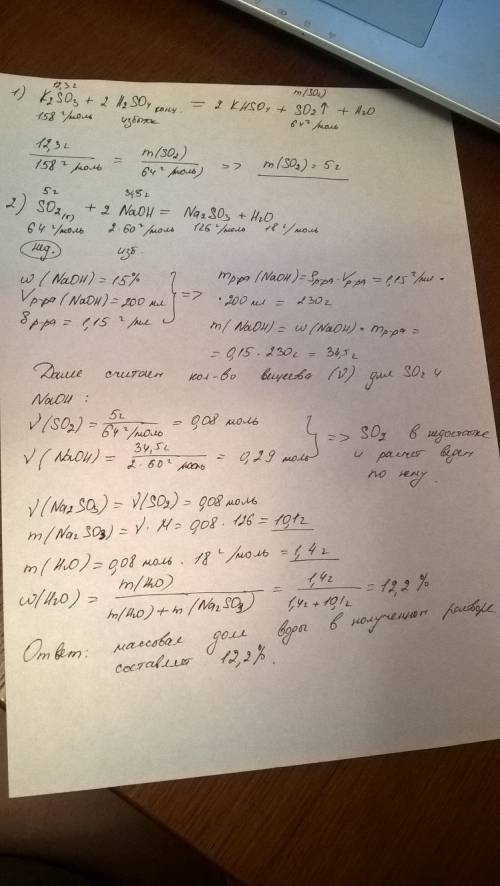 12,3г m(SO₂)
1) K₂SO₃ + 2 H₂SO₄ конц. = 2 KHSO₄ + SO₂↑ + H₂O
158 г/моль избыток 64 г/моль
12,3г / 158 г/моль = m(SO₂) / 64 г/моль) => m(SO₂) = 5г
5г 34,5г
2) SO₂(г) + 2 NaOH = Na₂SO₃ + H₂O
64 г/моль 2·60 г/моль 126 г/моль 18 г/моль
нед. изб.
ω (NaOH) = 15%
Vр-ра (NaOH) = 200 мл
ρр-ра = 1,15 г/мл
} => mр-ра (NaOH) = ρр-ра · Vр-ра = 1,15 г/мл ·
· 200 мл = 230г
m (NaOH) = ω (NaOH) · mр-ра =
= 0,15 · 230г = 34,5г
Далее считаем кол-во вещества (ν) для SO₂ и
NaOH :
ν(SO₂) = 5г / 64 г/моль = 0,08 моль
ν (NaOH) = 34,5г / 2·60 г/моль = 0,29 моль
} => SO₂ в недостатке
и расчет ведем
по нему.
ν(Na₂SO₃) = ν(SO₂) = 0,08 моль
m(Na₂SO₃) = ν · M = 0,08 · 126 = 10,1г
m(H₂O) = 0,08 моль · 18 г/моль = 1,4г
ω(H₂O) = m(H₂O) / m(H₂O) + m(Na₂SO₃) = 1,4г / 1,4г + 10,1г = 12,2 %
Ответ: массовая доля воды в полученном растворе
составляет 12,2%.